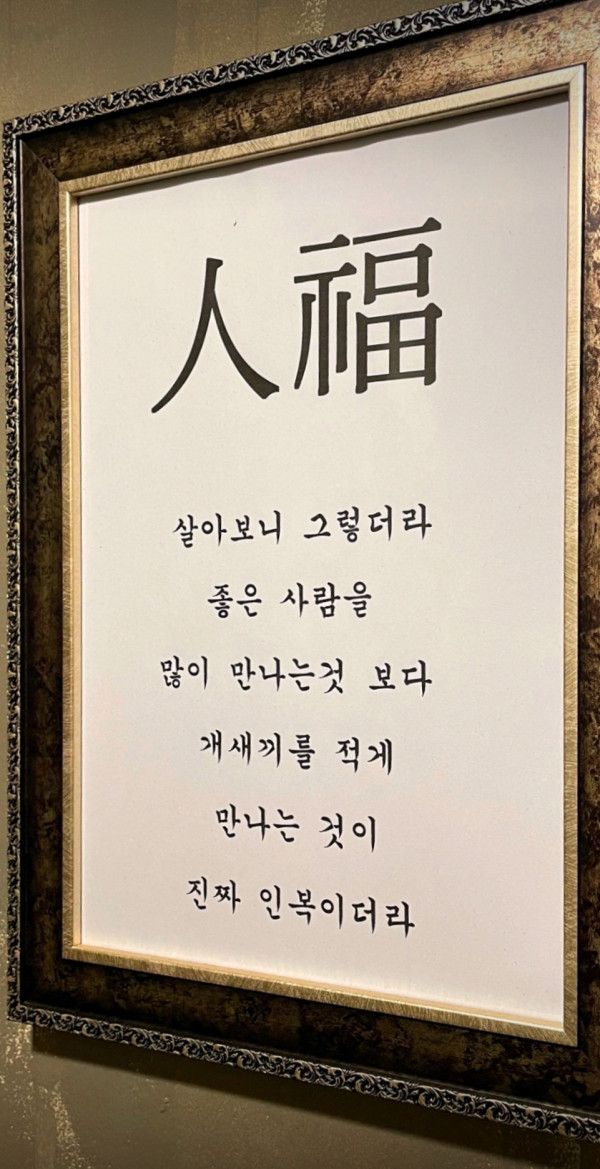 人福
살아보니 그렇더라
좋은 사람을
많이 만나는것 보다
개새끼를 적게
만나는 것이
진짜 인복이더라